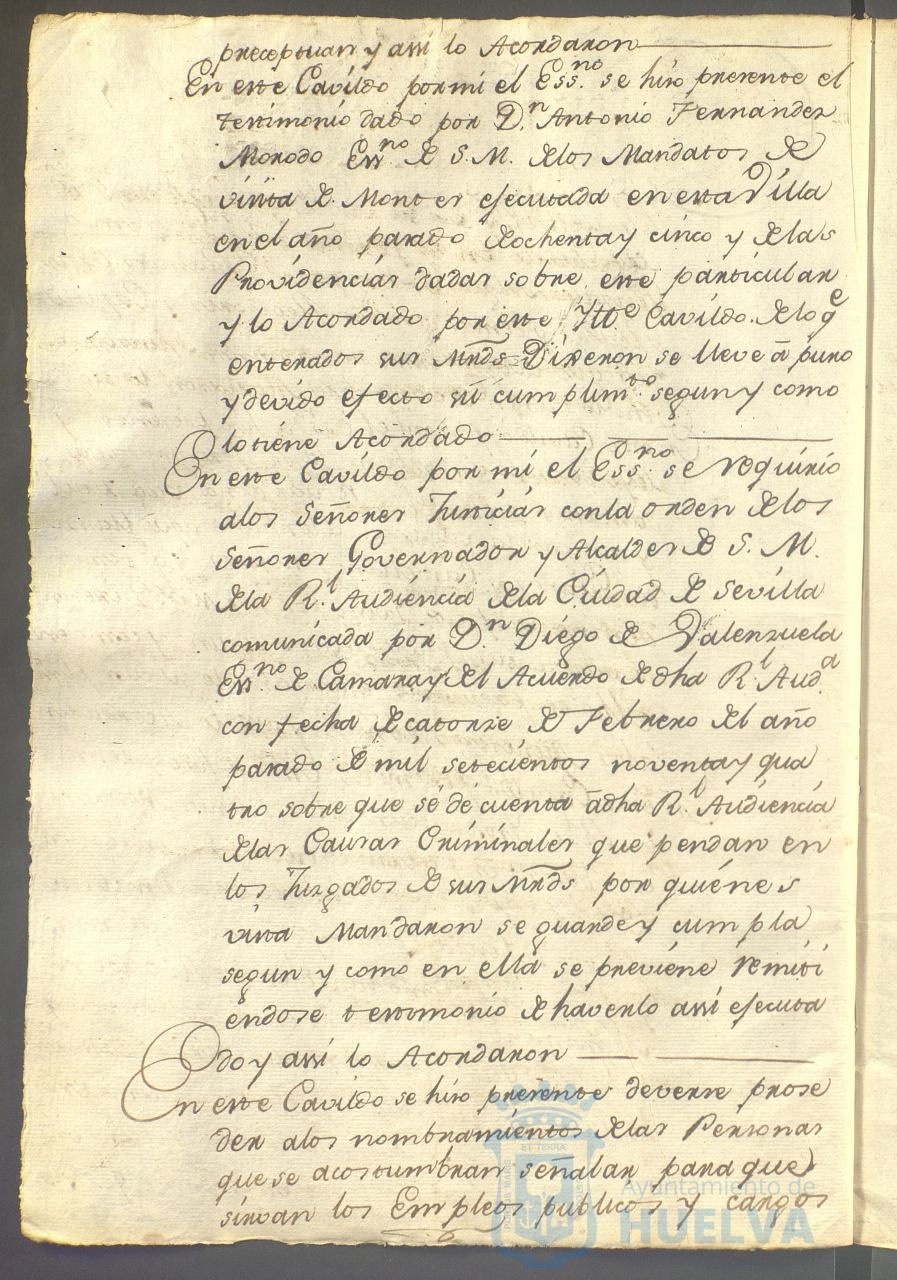 preceptuan y assi lo Acordaron
En este Cavildo por mi el Ess.no se hizo presente el
testimonio dado por D.n Antonio Fernandez
Morodo Ess.no de S. M. de los Mandatos de
visita de Montes ejecutada en esta Villa
en el año pasado de ochenta y cinco y de las
Providencias dadas sobre este particular
y lo Acordado por este Ytt.e Cavildo. de lo q.e
enterados sus Mrds Dixeron se lleve â puro
y devido efecto sú cumplim.to segun y como
lo tiene Acordado
En este Cavildo por mi el Ess.no se requirio
a los Señores Justicias con la orden de los
Señores Governador y Alcaldes de S. M.
de la R.l Audiencia de la Ciudad de Sevilla
comunicada por D.n Diego de Valenzuela
Ess.no de Camara y del Acuerdo de dha R.l Aud.a
con fecha de catorze de Febrero del año
pasado de mil setecientos noventa y qua
tro sobre que sé dé cuenta â dha R.l Audiencia
de las Causas Criminales que pendan en
los Juzgados de sus Mrds por quienes
vista Mandaron se guarde y cumpla
segun y como en ella se previene remiti
endose testimonio de haverlo assi ejecuta
do y assi lo Acordaron
En este Cavildo se hizo presente deverse prose
der a los nombramientos de las Personas
que se acostumbran señalar para que
sirvan los Empleos publicos y cargos
ET TERRÆ
Ayuntamiento de
HUELVA